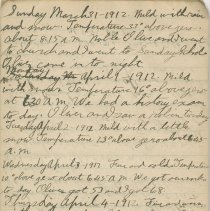 Sunday March 31-1912. Mild with rain
and snow. Temperature 33° above zero
about 8.15 a.m. Noble Oliver and I went
to church and I went to Sunday School
Oliver came in to-night.
Monday April 1, 1912. Mild
with snow Temperature 46° above zero
at 6.30 a.m. We had a history exam
to-day. Oliver and I saw a robin to-day
Tuesday April 2-1912. Mild with a little
snow Temperature 13° above zero about 6.45
a.m.
Wednesday April 3, 1912. Fair and cold Temperature
10° above zero about 6.45 A.M. We got our marks
to-day. Oliver got 57 and I got 68.
Thursday April 4-1912. Fair